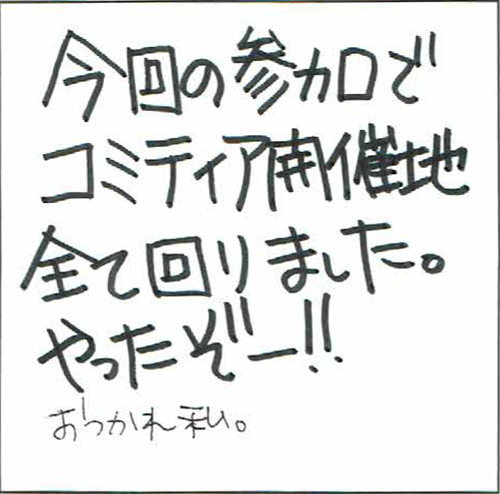 今回の参加で
コミティア開催地
全て回りました。
やったぞー!!
おつかれ私。